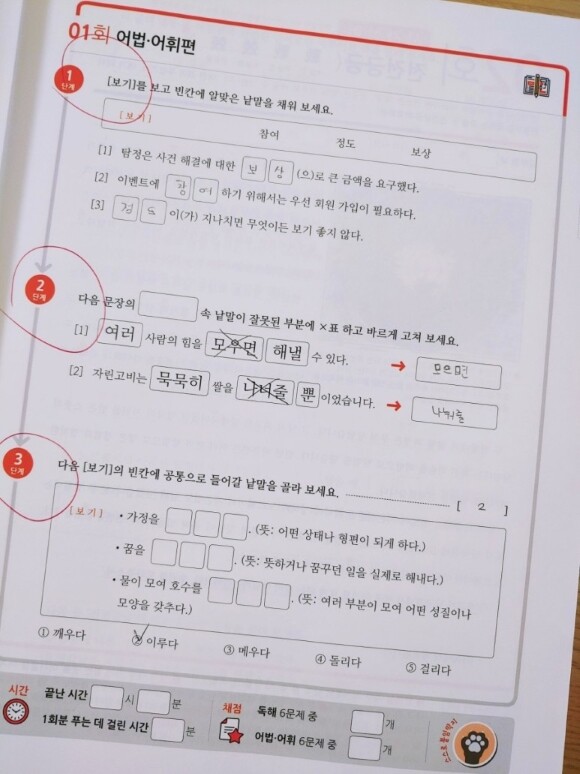 01회 어법·어휘편
1
단계
[보기]를 보고 빈칸에 알맞은 낱말을 채워 보세요.
[보기]
참여 정도 보상
[1] 탐정은 사건 해결에 대한 보 상 (으)로 큰 금액을 요구했다.
[2] 이벤트에 참 여 하기 위해서는 우선 회원 가입이 필요하다.
[3] 정 도 이(가) 지나치면 무엇이든 보기 좋지 않다.
2
단계
다음 문장의 속 낱말이 잘못된 부분에 ×표 하고 바르게 고쳐 보세요.
[1] 여러 사람의 힘을 모우면 해낼 수 있다. → 모으면
[2] 자린고비는 묵묵히 쌀을 나너줄 뿐이었습니다. → 나눠줄
3
단계
다음 [보기]의 빈칸에 공통으로 들어갈 낱말을 골라 보세요. [ 2 ]
[보기] • 가정을 . (뜻: 어떤 상태나 형편이 되게 하다.)
• 꿈을 . (뜻: 뜻하거나 꿈꾸던 일을 실제로 해내다.)
• 물이 모여 호수를 . (뜻: 여러 부분이 모여 어떤 성질이나
모양을 갖추다.)
① 깨우다 ② 이루다 ③ 메우다 ④ 돌리다 ⑤ 걸리다
시간 끝난 시간 시 분
1회분 푸는 데 걸린 시간 분
채점 독해 6문제 중 개
어법·어휘 6문제 중 개